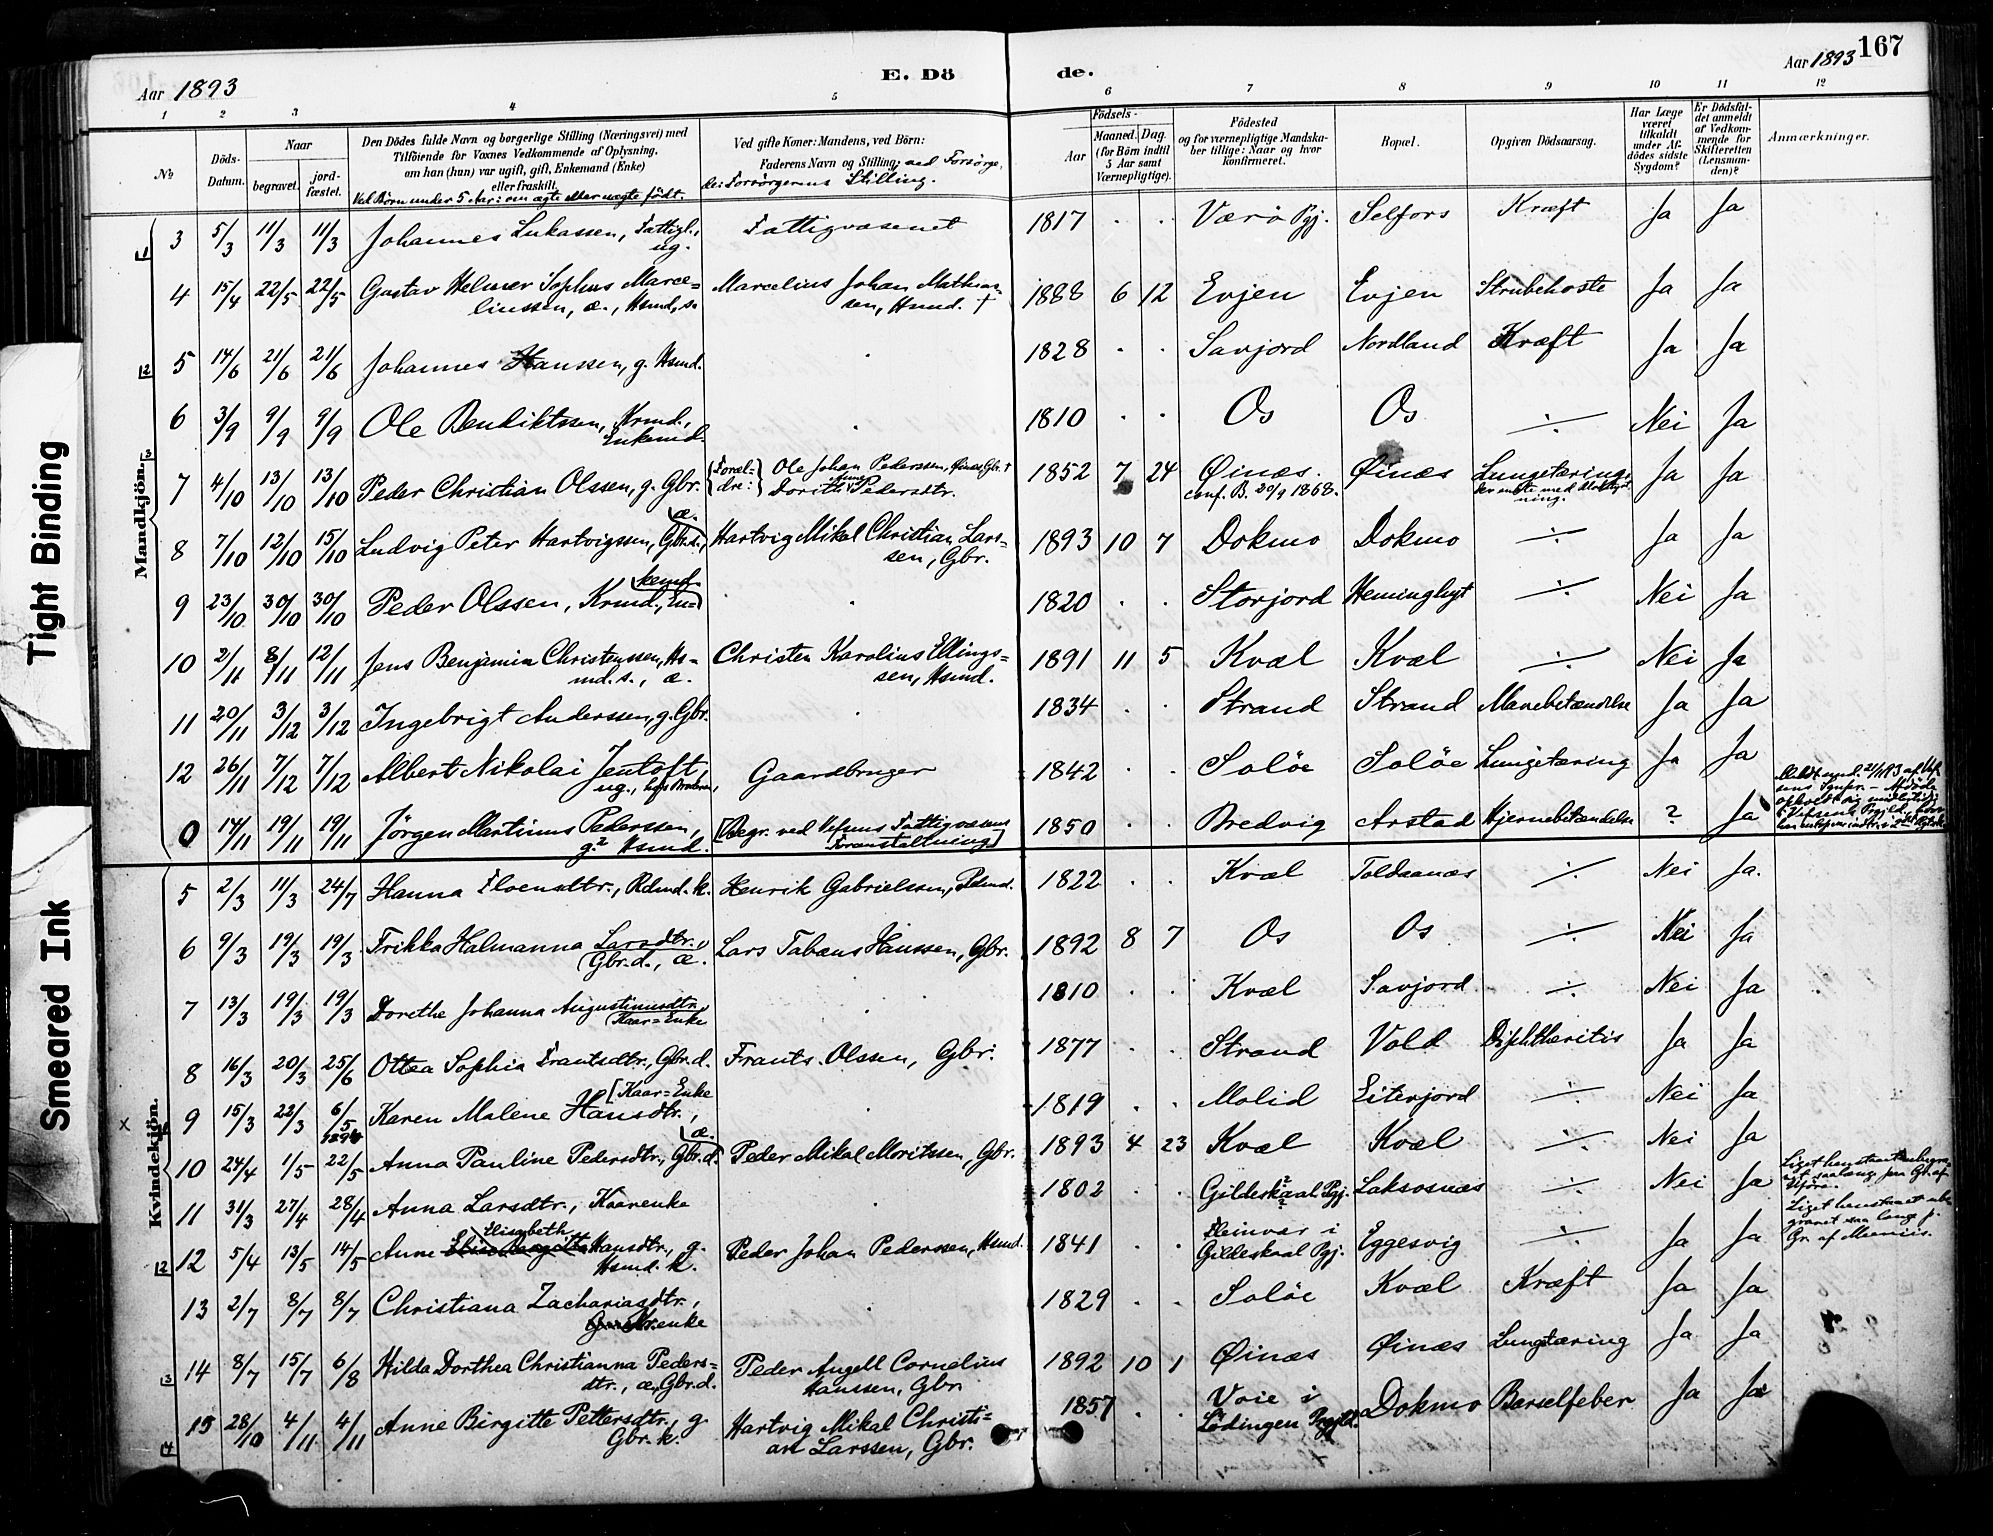 167
Aar 1893
E. Dö
de.
Aar 1893
1 2 3 4 5 6 7 8 9 10 11 12
№
Döds-Datum.
Naar
begravet.
jord-fæstet.
Den Dödes fulde Navn og borgerlige Stilling (Næringsvei) med
Tilföiende for Voxnes Vedkommende af Oplysning,
om han (hun) var ugift, gift, Enkemand (Enke)
eller fraskilt.
Ved Börn under 5 Aar: om ægte eller uægte födt.
Ved gifte Koner: Mandens, ved Börn:
Faderens Navn og Stilling; ved Forsörge-
de: Forsörgerens Stilling.
Födsels-
Aar
Maaned. Dag.
(for Börn indtil
5 Aar samt
Værnepligtige).
Födested
og for værnepligtige Mandska-
ber tillige: Naar og hvor
konfirmeret.
Bopæl.
Opgiven Dödsaarsag.
Har Læge
været
tilkaldt
under Af-
dödes sidste
Sygdom?
Er Dödsfal-
det anmeldt
af Vedkom-
mende for
Skifteretten
(Lensman-
den)?
Anmærkninger.
Mandkjön.
3 5/3 11/3 11/3 Johannes Lukassen, Fattigl., ug. Fattigvæsenet 1817 . . Værø Pgj. Selfors Kræft Ja Ja
4 15/4 22/5 22/5 Gustav Helmer Sophus Marce-
linssen, æ., Hsmd. s. Marcelius Johan Mathias-
sen, Hsmd. † 1888 6 12 Evjen Evjen Strubehoste Ja Ja
5 14/6 21/6 21/6 Johannes Hanssen, g. Hsmd. . 1828 . . Savjord Nordland Kræft Ja Ja
6 3/9 9/9 9/9 Ole Bendiktssen, Krmd., Enkemd. . 1810 . . Os Os ÷ Nei Ja
7 4/10 13/10 13/10 Peder Christian Olssen, g. Gbr. {Foræl-
dre:} Ole Johan Pederssen, Øinæs Gbr. †
Dorith Pedersdtr. 1852 7 24 Øinæs.
conf. B. 20/9 1868. Øinæs Lungetæring, Ja Ja
8 7/10 12/10 15/10 Ludvig Peter Hartvigssen, Gbr.s., æ. Hartvig Mikal Christian Lars-
sen, Gbr. 1893 10 7 Dokmo Dokmo ÷ Ja Ja
9 23/10 30/10 30/10 Peder Olssen, Krmd., En-
kemd. . 1820 . . Storjord Heminghyt ÷ Nei Ja
10 2/11 8/11 12/11 Jens Benjamin Christenssen, Hs-
md. s., æ. Christen Karolius Ellings-
sen, Hsmd. 1891 11 5 Kvæl Kvæl ÷ Nei Ja
11 20/11 3/12 3/12 Ingebrigt Anderssen, g. Gbr. . 1834 . . Strand Strand Mavebetændelse Ja Ja
12 26/11 7/12 7/12 Albert Nikolai Jentoft,
ug., hos Broderen, Gaardbruger 1842 . . Soløe Soløe Lungetæring Ja Ja
0 14/11 19/11 19/11 Jørgen Martinus Pederssen,
g? Hsmd. [Begr. ved Vefsens Fattigvæsens
Foranstaltning] 1850 . . Bredvig Arstad Hjernebetændelse ? Ja
Kvindekjön.
5 2/3 11/3 24/7 Hanna Floensdtr., Rdmd. k. Henrik Gabrielssen, Rdmd. 1822 . . Kvæl Toldaanæs ÷ Nei Ja.
6 9/3 19/3 19/3 Frikka Halmanna Larsdtr.,
Gbr. d., æ. Lars Tabæus Hanssen, Gbr. 1892 8 7 Os Os ÷ Nei Ja
7 13/3 19/3 19/3 Dorethe Johanna Augustinusdtr.
Kaar-Enke . 1810 . . Kvæl Savjord ÷ Nei Ja
8 16/3 20/3 25/6 Ottea Sophia Frantsdtr., Gbr. d. Frants Olssen, Gbr. 1877 . . Strand Vold Diphtheritis Ja Ja
x 9 15/3 22/3 6/5 1894 Karen Malene Hansdtr., [Kaar-Enke 1819 . . Molid Eiterjord ÷ Nei Ja
10 24/4 1/5 22/5 Anna Pauline Pedersdtr., Gbr. d. æ. Peder Mikal Moritssen, Gbr. 1893 4 23 Kvæl Kvæl ÷ Nei Ja
11 31/3 27/4 28/4 Anna Larsdtr., Kaarenke . 1802 . . Gildeskaal Pgj. Laksosnæs Nei Ja Liget henstaaet ubegra-
vet saalænge paa Gr. af
Uføre.
12 5/4 13/5 14/5 Anne Elisabeth Hansdtr., g.
Hsmd. k. Peder Johan Pederssen, Hsmd. 1841 . . Fleinvær i
Gildeskaal Pgj. Eggesvig ÷ Ja Ja Liget henstaaet ube-
gravet saa længe p.
Gr. af Meeniis.
13 2/7 8/7 8/7 Christiana Zachariasdtr.,
Kr.enke . 1829 . . Soløe Kvæl Kræft Ja Ja
14 8/7 15/7 6/8 Hilda Dorthea Christianna Peders-
dtr., æ., Gbr. d. Peder Angell Cornelius
Hanssen, Gbr. 1892 10 1 Øinæs Øinæs Lungetæring Ja Ja
15 28/10 4/11 4/11 Anne Birgitte Pettersdtr., g.
Gbr. k. Hartvig Mikal Christi-
an Larssen, Gbr. 1857 . . Voie i
Lødingen Prgjld. Dokmo Barselfeber Ja Ja
Tight Binding
Smeared Ink